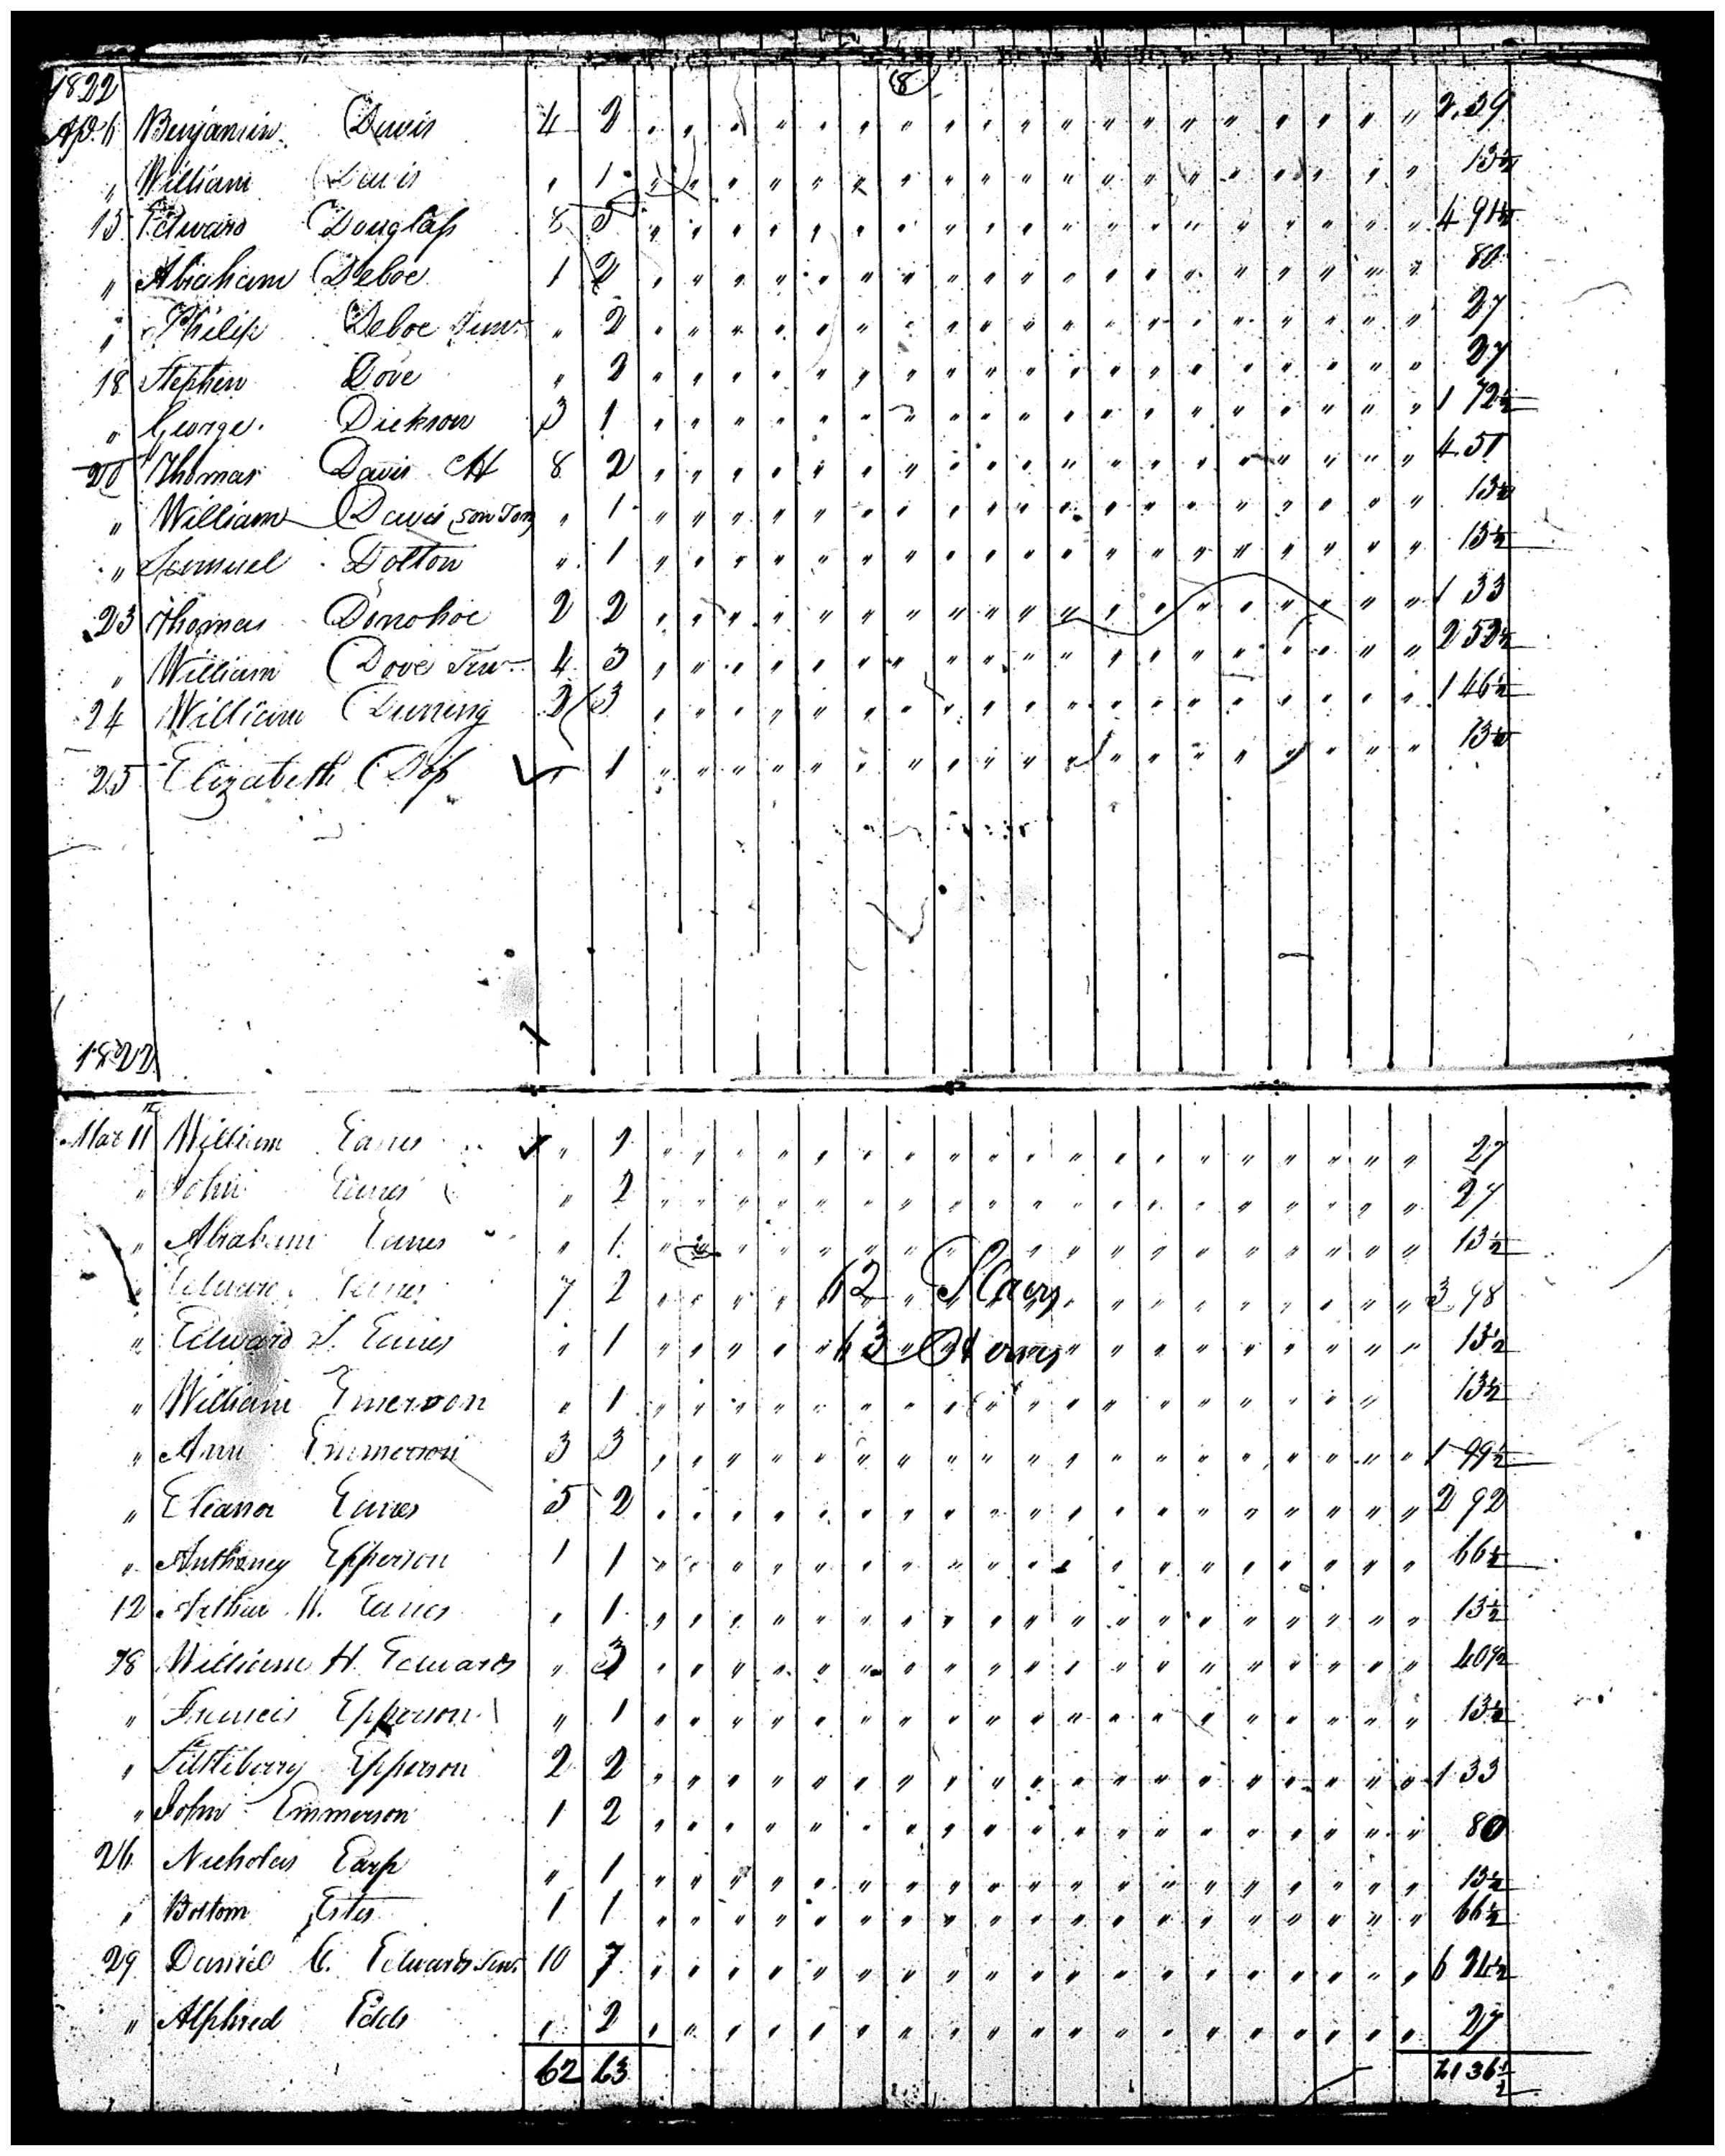 1822
8
Ap. 6 Benjamin Davis 4 2 2.39
" William Davis " 1 13½
15 Edward Douglass 8 5 4 91½
" Abraham Deboe 1 2 80
" Philip Deboe Junr " 2 27
18 Stephen Dove " 2 27
" George Dickson 3 1 1 72½
20 Thomas Davis CH 8 2 4 51
" William Davis son Tom " 1 13½
" Samuel Dolton " 1 13½
23 Thomas Donohoe 2 2 1 33
" William Dove Senr 4 3 2 52½
24 William Durring 2 3 1 46½
25 Elizabeth Doss " 1 13½
1822
Mar 11 William Eanes " 2 27
" John Eanes " 2 27
" Abraham Eanes " 1 13½
" Edward Eanes 7 2 3 98
62 Slaves
" Edward S. Eanes " 1 13½
63 Horses
" William Emerson " 1 13½
" Ann Emmerson 3 3 1 99½
" Eleanor Eanes 5 2 2 92
" Anthoney Epperson 1 1 66½
12 Arthur H. Eanes " 1 13½
18 William H. Edwards " 3 40½
" Francis Epperson " 1 13½
" Littleberry Epperson 2 2 1 33
" John Emmerson 1 2 80
26 Nicholas Earp " 1 13½
" Bottom Estes 1 1 66½
29 Daniel C. Edwards Senr 10 7 6 24½
" Alphred Edds " 2 27
62 63 21 36½